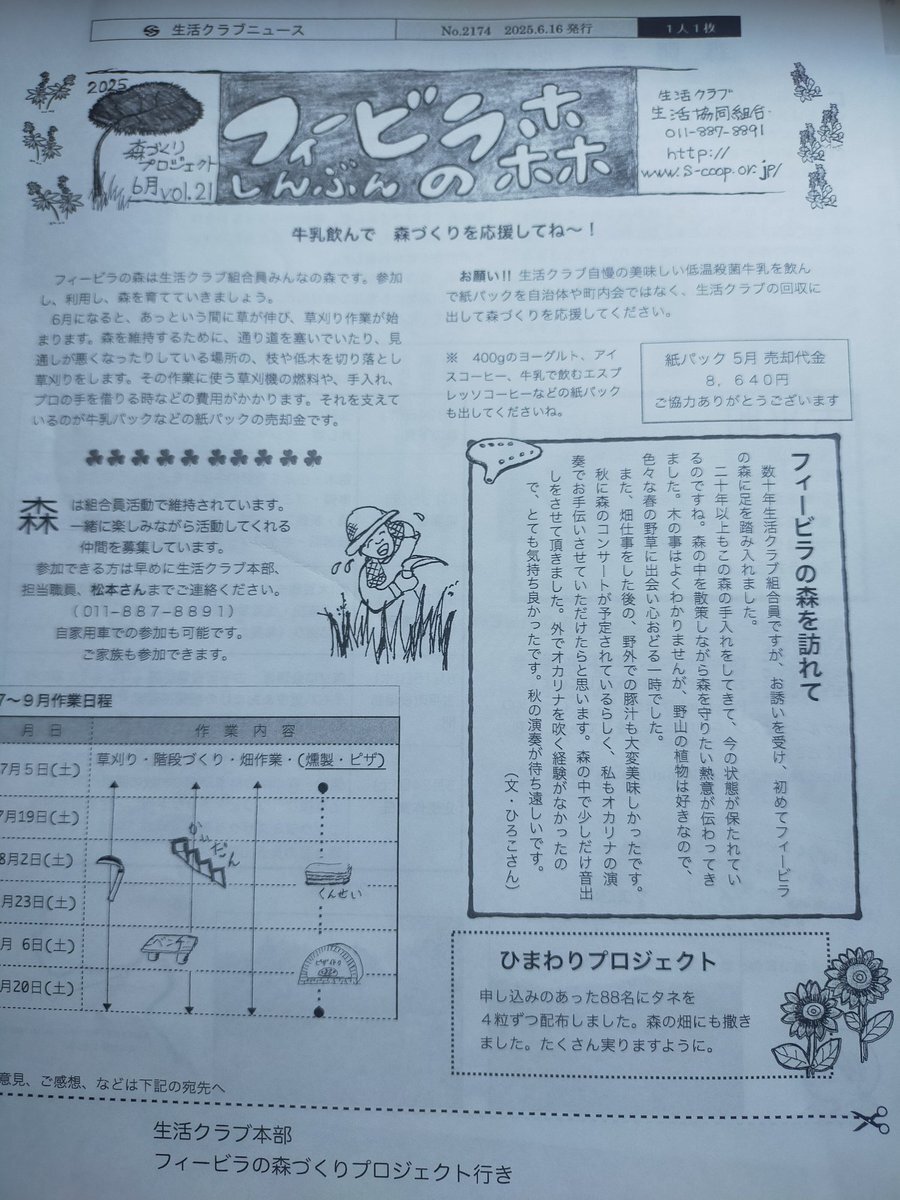 生活クラブニュース
No.2174 2025.6.16発行
1人1枚
2025
森づくり
プロジェクト
6月 vol.21
フィービラの森
しんぶん
生活クラブ
生活協同組合
011-887-8891
http://
www.s-coop.or.jp/
牛乳飲んで 森づくりを応援してね〜!
フィービラの森は生活クラブ組合員みんなの森です。参加
し、利用し、森を育てていきましょう。
6月になると、あっという間に草が伸び、草刈り作業が始
まります。森を維持するために、通り道を塞いでいたり、見
通しが悪くなったりしている場所の、枝や低木を切り落とし
草刈りをします。その作業に使う草刈機の燃料や、手入れ、
プロの手を借りる時などの費用がかかります。それを支えて
いるのが牛乳パックなどの紙パックの売却金です。
お願い!! 生活クラブ自慢の美味しい低温殺菌牛乳を飲ん
で紙パックを自治体や町内会ではなく、生活クラブの回収に
出して森づくりを応援してください。
※ 400gのヨーグルト、アイ
スコーヒー、牛乳で飲むエスプ
レッソコーヒーなどの紙パック
も出してくださいね。
紙パック 5月 売却代金
8,640円
ご協力ありがとうございます
森は組合員活動で維持されています。
一緒に楽しみながら活動してくれる
仲間を募集しています。
参加できる方は早めに生活クラブ本部、
担当職員、松本さんまでご連絡ください。
(011-887-8891)
自家用車での参加も可能です。
ご家族も参加できます。
フィービラの森を訪れて
数十年生活クラブ組合員ですが、お誘いを受け、初めてフィービラ
の森に足を踏み入れました。
二十年以上もこの森の手入れをしてきて、今の状態が保たれてい
るのですね。森の中を散策しながら森を守りたい熱意が伝わってき
ました。木の事はよくわかりませんが、野山の植物は好きなので、
色々な春の野草に出会い心おどる一時でした。
また、畑仕事をした後の、野外での豚汁も大変美味しかったです。
秋に森のコンサートが予定されているらしく、私もオカリナの演
奏でお手伝いさせていただけたらと思います。森の中で少しだけ音出
しをさせて頂きました。外でオカリナを吹く経験がなかったの
で、とても気持ち良かったです。秋の演奏が待ち遠しいです。
(文・ひろこさん)
7〜9月作業日程
月 日
作 業 内 容
7月5日(土)
草刈り・階段づくり・畑作業・(燻製・ピザ)
7月19日(土)
8月2日(土)
かいだん
くんせい
月23日(土)
月 6日(土)
ベンチ
ピザ
月20日(土)
ひまわりプロジェクト
申し込みのあった88名にタネを
4粒ずつ配布しました。森の畑にも撒き
ました。たくさん実りますように。
意見、ご感想、などは下記の宛先へ
生活クラブ本部
フィービラの森づくりプロジェクト行き